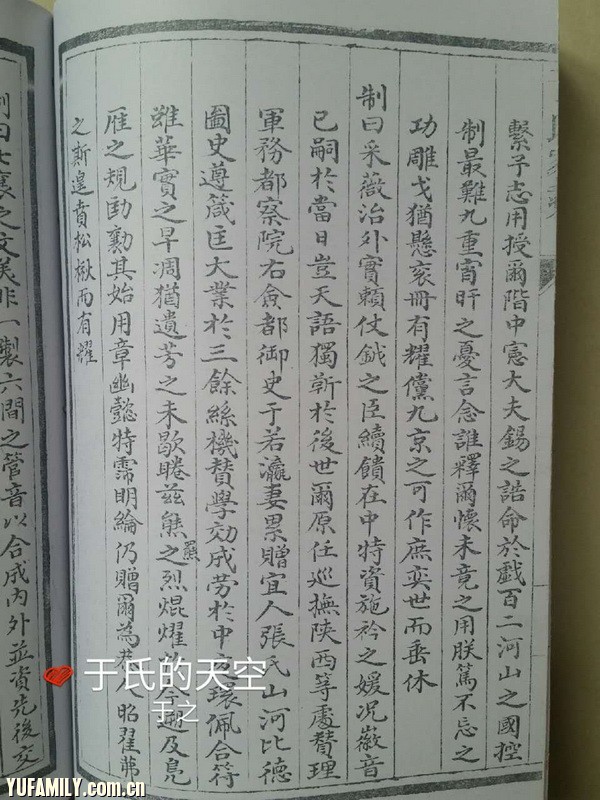 繫予志用授爾階中憲大夫錫之誥命於戲百二河山之國控
制最難九重宵旰之憂言念誰釋爾懷未竟之用朕篤不忘之
功雕戈猶懸袞冊有耀儻九京之可作庶奕世而垂休
制曰采薇治外實賴仗鉞之臣續饋在中特資施衿之媛况徽音
已嗣於當日豈天語獨靳於後世爾原任巡撫陝西等處贊理
軍務都察院右僉都御史于若瀛妻累贈宜人張氏山河比德
圖史遵箴匡大業於三餘絲機贊學効成勞於中 環佩合符
雖華實之早凋猶遺芳之未歇睠兹熊羆之烈焜燿 今遡及鳧
雁之規劻勷其始用章幽懿特霈明綸仍贈爾為恭人昭翟茀
之斯遑賁松楸而有耀
制曰 之文美非一製六間之管音以合成内外並資先後交
于氏的天空
于之
YUFAMILY.com.cn